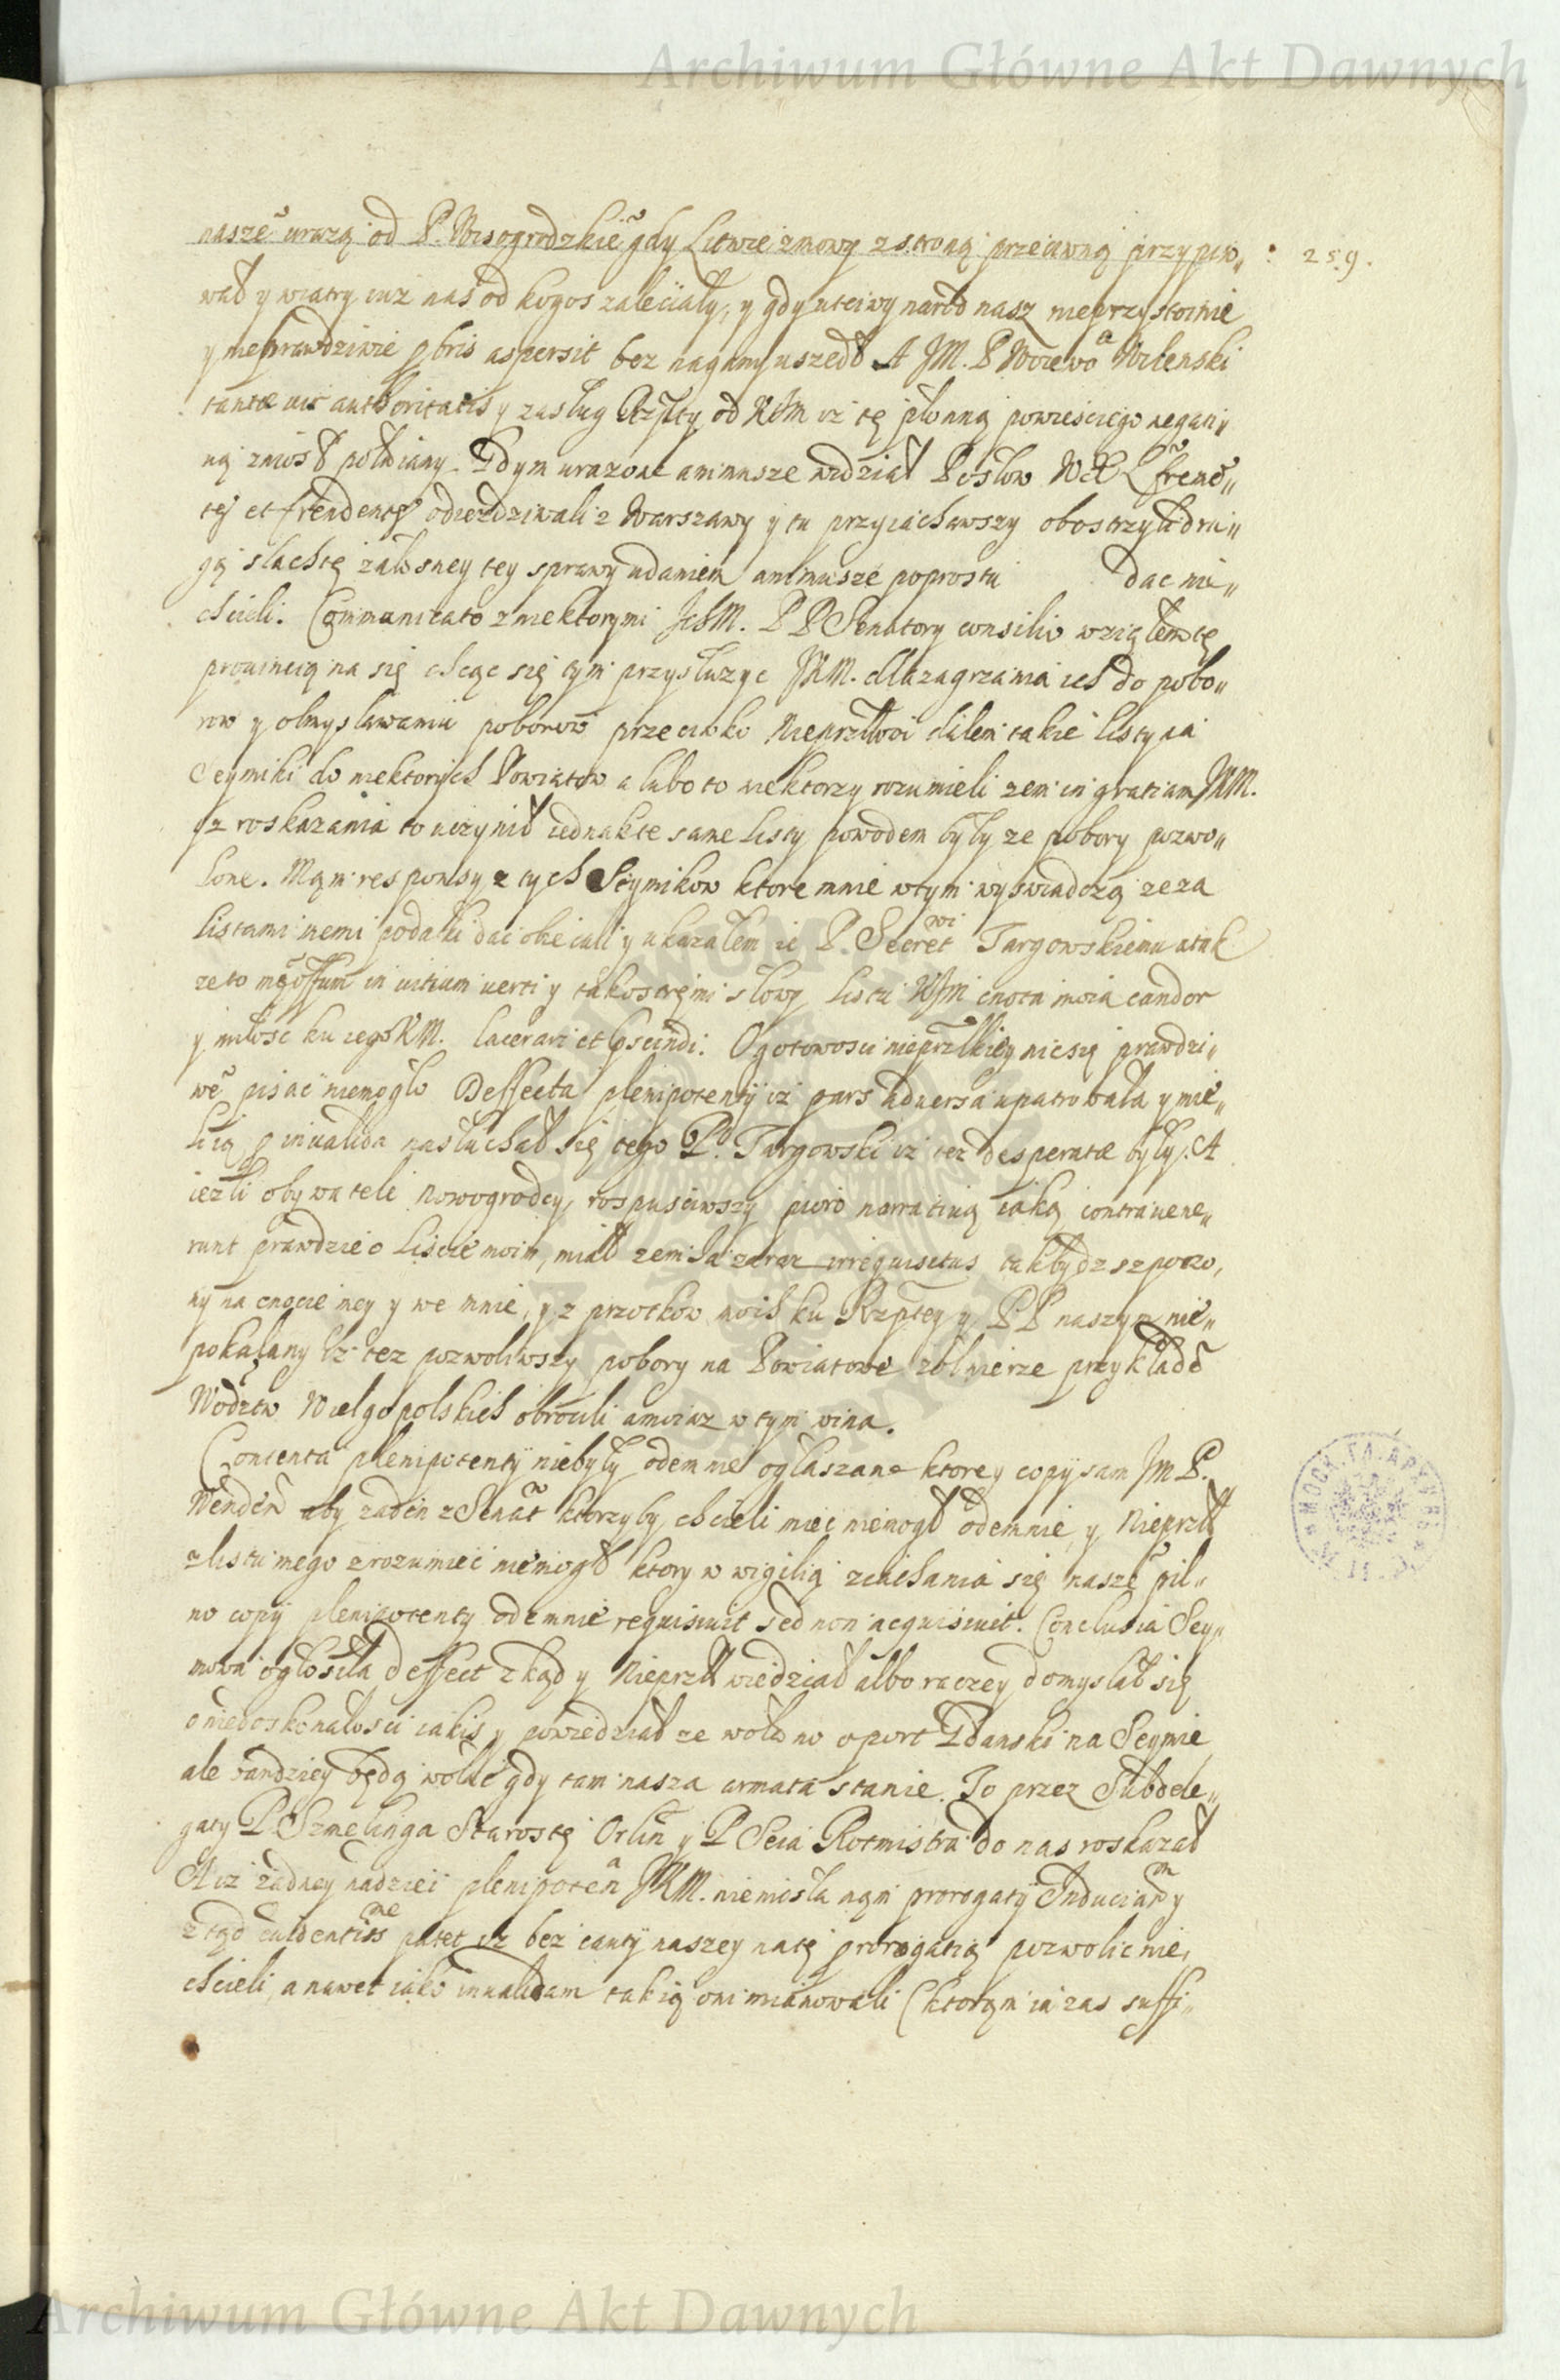 Archiwum Główne Akt Dawnych
naszē urazą od P. Wisogrodzkiē gdy Litwie zmowy z stroną przeciwną przypiso„ : 259.
wał y wiatry iuz nas od kogos zaleciały, y gdy uczciwy narod nasz nieprzystoinie
y nieprawdziwie pbris aspersit bez nagany uszedł A JM. P Woiewoa Wilenski
tantæ vir authoritatis y zasług Rzpty od KJM iz tę płonną powiesc iego negati„
ną zniosł połaiany. Gdym urazone animusze widział Posłow WXL
tes et frendentes odiezdziwali z Warszawy y tu przyiachawszy obostrzyli dru„
gą slachtę załosney tey sprawy udaniem animusze poprostu dac nie„
chcieli. Communicato z niektorymi IchM. P P Senatory consilio wziąłem tę
prouincią na się chcąc się tym przysłuzyc JKM. dla zagrzania ich do pobo„
row y obmyslawania poborow przeciwko Nieprzłłoi dałem takie listy na
Seymiki do niektorych Powiatow a lubo to niektorzy rozumieli zem in gratiam JKM.
y z roskazania to uczynił iednak te same listy powodem były ze pobory pozwo„
lone. Mam responsy z tych Seymikow ktore mnie w tym wyswiadczą ze za
listami memi podatki dac obiecali y ukazałem ie P. Secretwi Targowskiemu a tak
ze to in uitium uerti y tak ostrymi słowy listu KJM cnota moia candor
y miłosc ku iego KM. lacerari et pscindi. O gotowosci nieprzłkiey nic się prawdzi„
wē pisac niemogło Deffecta plenipotenty iz pars aduersa upatrowała y mie„
lią p inualida nasłuchał się tego Pd. Targowski iz tez desperatæ były. A
iezli obywateli Nowogrodcy, rospusciwszy pioro narratiuą iaką contrauene„
runt prawdzie o liscie moim, miał zem ia zaraz irrequisitus tak bydz szpoco„
ny na cnocie mey y we mnie, y z przotkow moich ku Rzptey y PP naszym nie„
pokalany Iz tez pozwoliwszy pobory na Powiatowe zołnierze przykładē
Wodztw Wielgopolskich obrocili a moiaz w tym wina.
Contenta plenipotenty niebyły odemnie ogłaszane ktorey copy sam Jm P.
Wendeñ aby zaden z Senat ktorzyby chcieli miec niemogł odemnie, y Nieprzł
z listu mego zrozumiec niemogł ktory w wigilią ziachania się naszē pil„
no copy plenipotenty odemnie requisiuit sed non acquisiuit. Conclusia Sey„
mowa ogłosiła deffect zkąd y Nieprzł wiedział albo raczey domyslał się
o niedoskonałosci iakis y powiedział ze wolno o port Gdanski na Seymie
ale bardziey będą wolac gdy tam nasza armata stanie. To przez Subdele„
gaty P. Szmelinga Starostę Orliñ y P Seia Rotmistra do nas roskazał
A iz zadney nadziei plenipoteña JKM. nieniosła nam prorogaty Induciarm y
ztąd euidentissme patet iz bez cauty naszey na tę prorogatią pozwolic nie„
chcieli, a nawet iako inualidam takią oni mianowali (ktorąm ia zas suffi„
Archiwum Główne Akt Dawnych